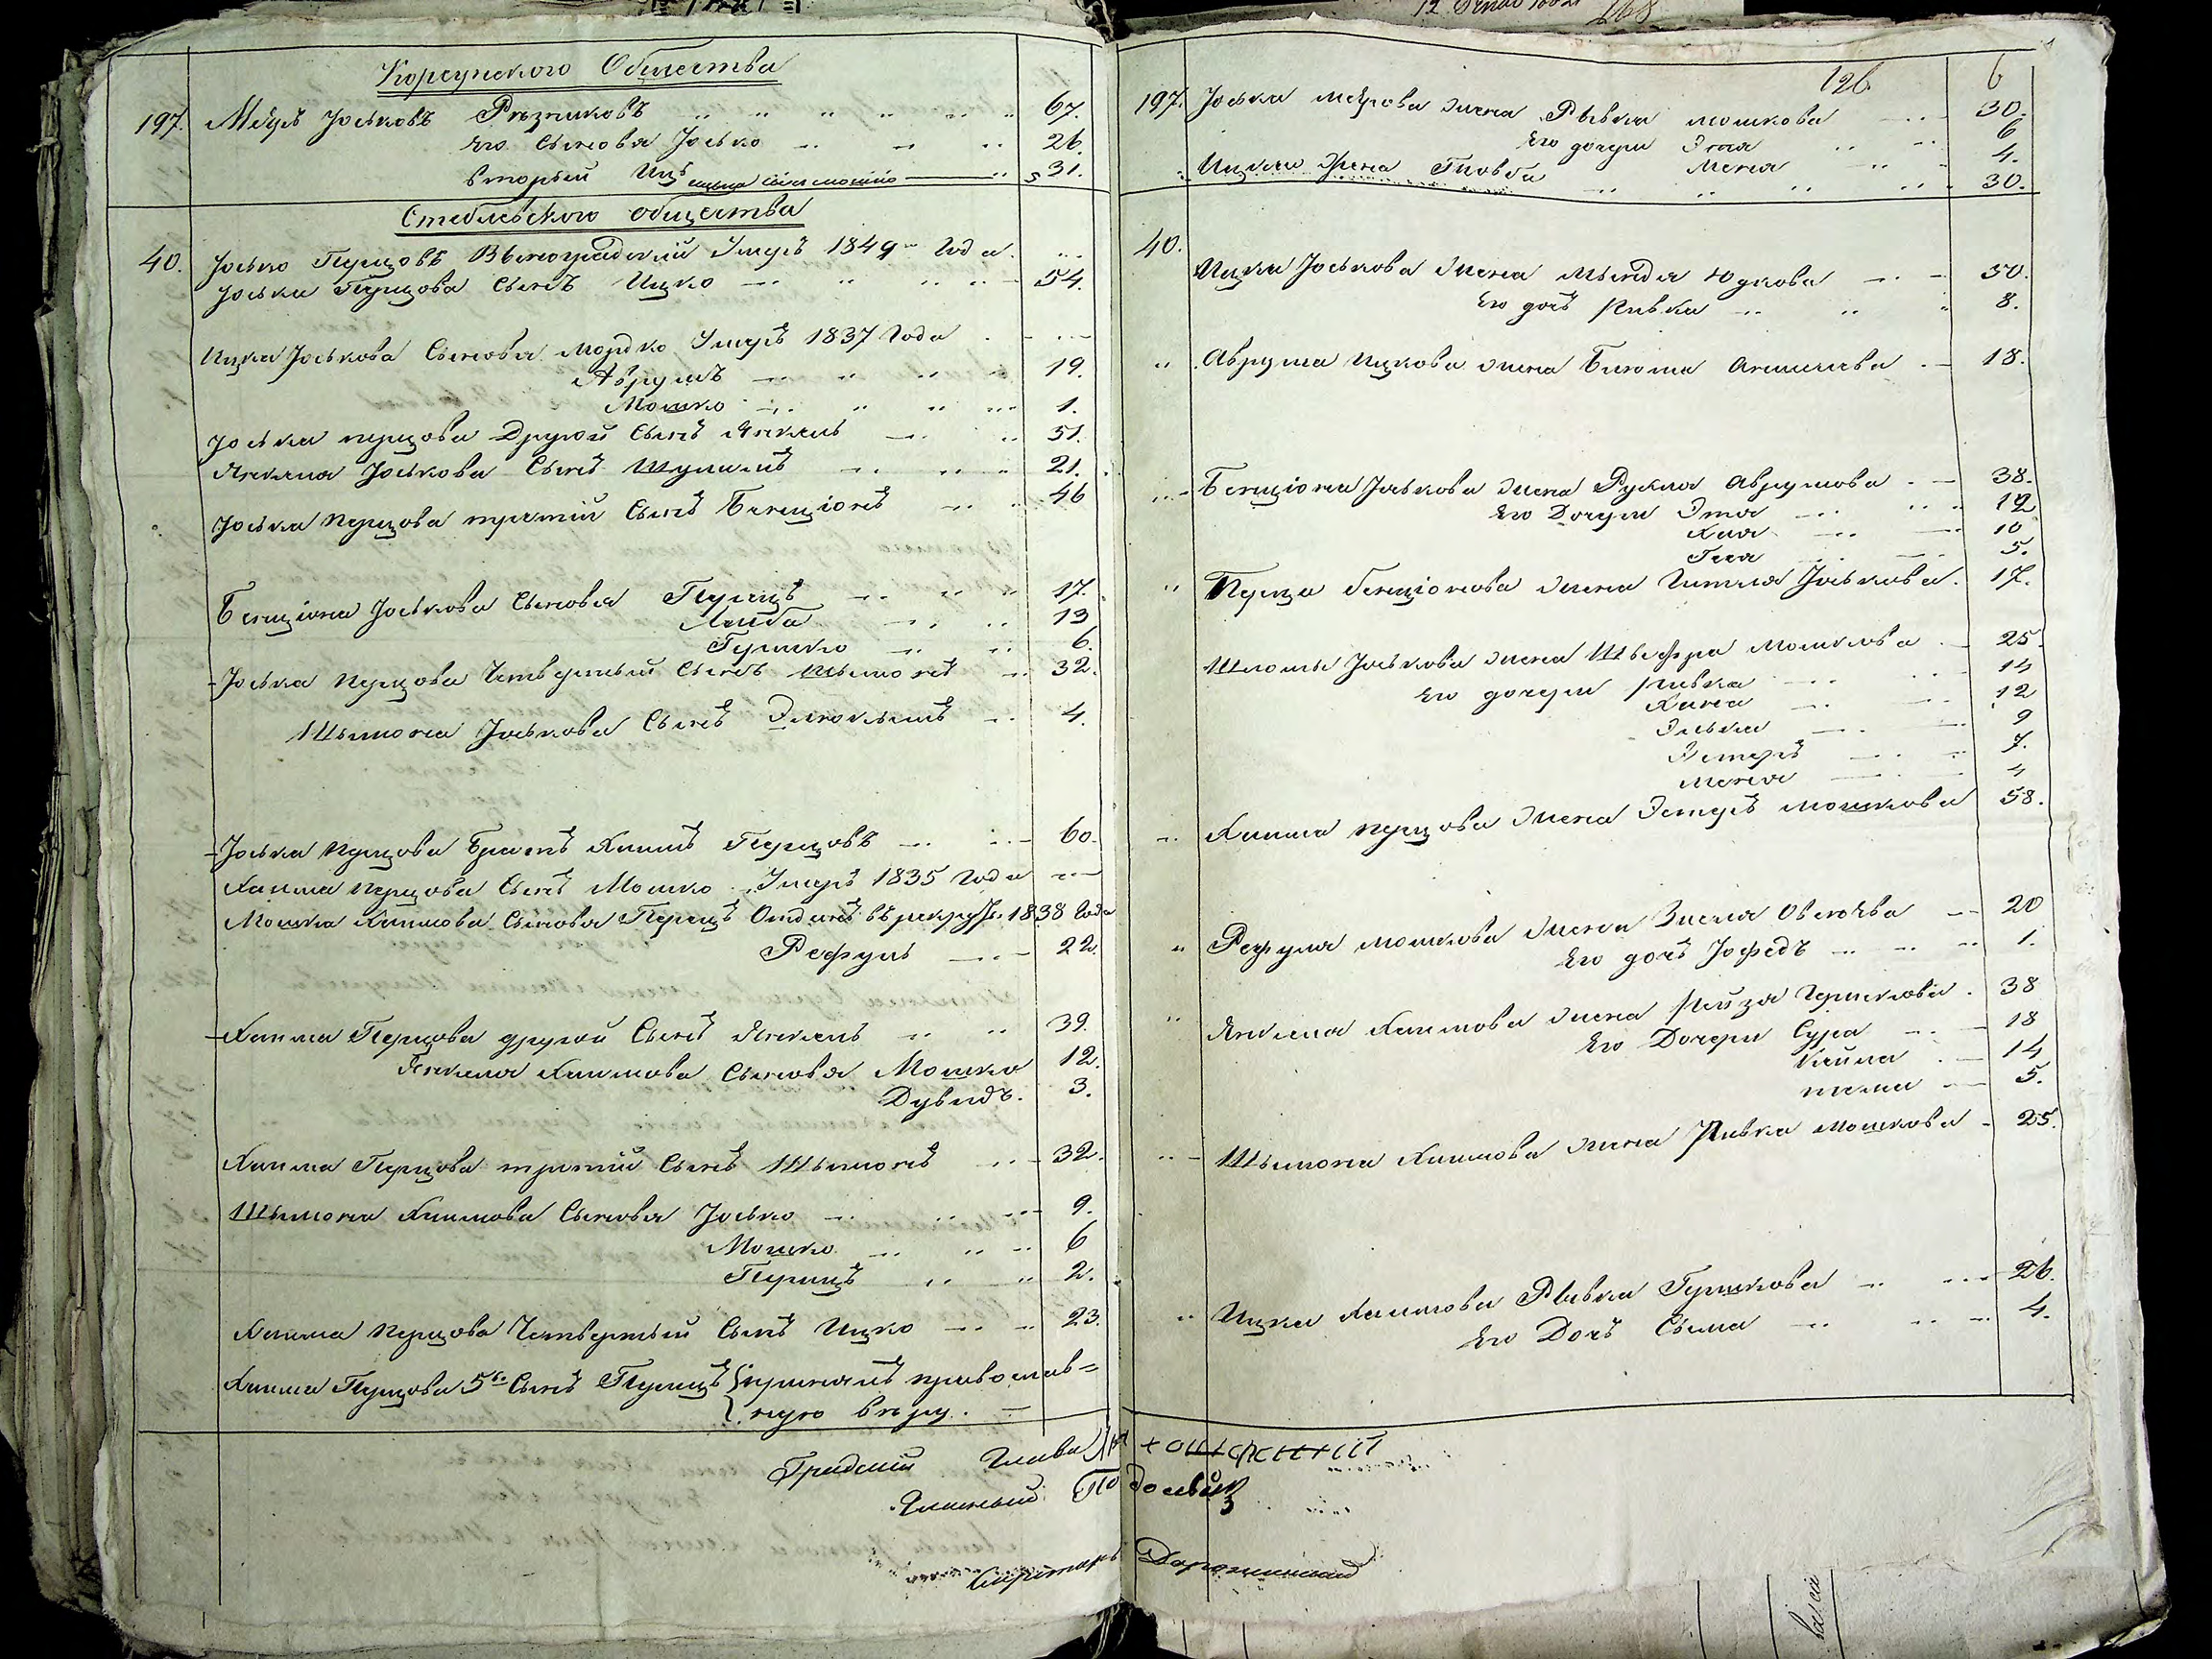 Корсунского Общества
197. Мееръ Іоськовъ Резниковъ 67.
Его Сыновья Іосько 26.
второй Ицъ 31.
Стеблевского общества
40. Іосько Перцовъ Вышеградский Умеръ 1849 Года.
Іоська Перцова Сынъ Ицко 54.
Ицка Іоськова Сыновья Мордко Умеръ 1837 Года
Аврумъ 19.
Мошко 1.
Іоська перцова Другой Сынъ Янкель 51.
Янкеля Іоськова Сынъ Шулимъ 21.
Іоська перцова третій Сынъ Бенціонъ 46
Бенціона Іоськова Сыновья Перецъ 17.
Лейба 13
Гершко 6.
Іоська перцова Четвертый Сынъ Шьмонъ 32.
Шьмона Іоськова Сынъ 4.
Іоська перцова Братъ Хаимъ Перцовъ 60.
Хаима перцова Сынъ Мошко Умеръ 1835 Года
Мошка Хаимова Сыновья Перецъ Отданъ въ рекруты 1838 Года
Рефулъ 22.
Хаима Перцова другой Сынъ Янкель 39.
Янкеля Хаимова Сыновья Мошко 12.
Дувидъ. 3.
Хаима Перцова третій Сынъ Шьмонъ 32.
Шьмона Хаимова Сыновья Іосько 9.
Мошко 6
Перецъ 2.
Хаима перцова Четвертый Сынъ Ицко 23.
Хаима Перцова 5й Сынъ Перецъ принялъ православ=
ную веру.
126. 6
197. Іоська меерова жена Рывка мошкова 30.
Его дочери Этя 6
Меня 4.
Ицка жена Товба 30.
40.
Ицка Іоськова жена Мында Юдкова 50.
Его дочъ Ривка 8.
Аврума Ицкова жена 18.
Бенціона Іоськова жена Рухля Аврумова 38.
Его Дочери Этя 12
Хая 10
Гея 5.
Перца бенціонова жена Гитля Іоськова. 17.
Шьмона Іоськова жена Шьфра Мошкова 25.
Его дочери Ривка 14
Хана 12
Элька 9
Эстеръ 7.
Меня 4
Хаима перцова жена Эстеръ мошкова 58.
Рефула мошкова жена 20
Его дочъ Іофедъ 1.
Янкеля Хаимова жена Рейзя Гершкова. 38
Его Дочери Сура 18
Хайма 14
5.
Шьмона Хаимова жена Ривка мошкова 25.
Ицка Хаимова Ривка Гершкова 26.
Его Дочъ Сыма 4.
Градский Глава
Гласный
Секретарь